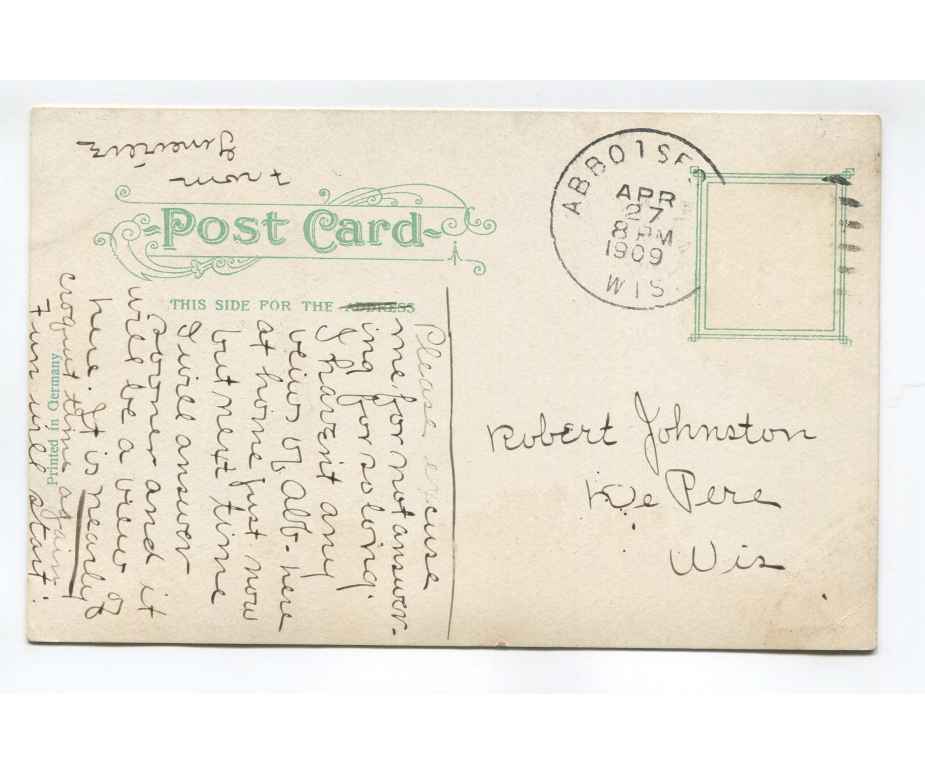 Post Card
THIS SIDE FOR THE ADDRESS
Printed in Germany
ABBOTSF
APR
27
8 PM
1909
WIS.
Robert Johnston
De Pere
Wis
Please excuse
me for not answer-
ing for so long.
I havent any
veiws of abb- here
at home just now
but next time
I will answer
sooner and it
will be a view of
here. It is nearly
croquet time again
Fun will start.
From
Genevieve